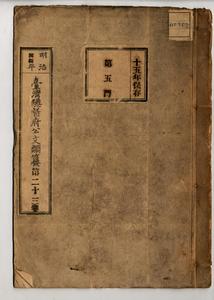 十五年保存
第五門
明治
臺灣總督府公文類纂第二十三卷